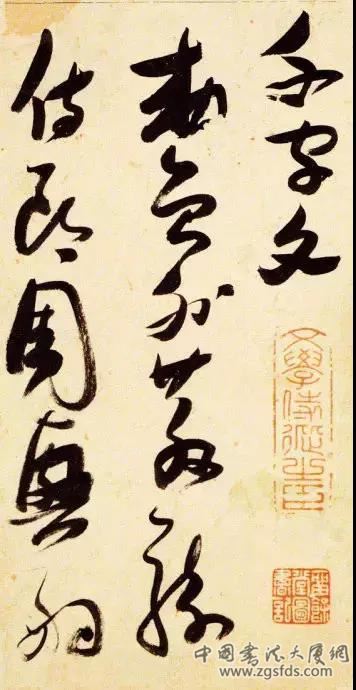 千字文
敕員外散騎
侍郎周興嗣
文學侍從之臣
中國書法大厦網
www.zgsfds.com